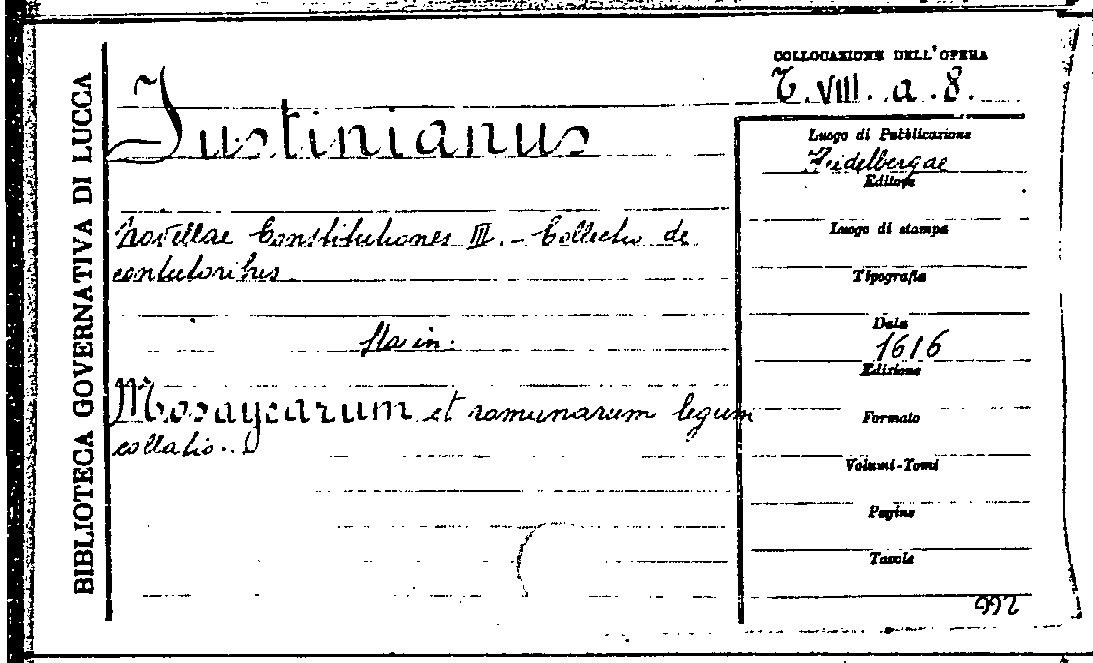 BIBLIOTECA GOVERNATIVA DI LUCCA
COLLOCAZIONE DELL'OPERA
T. VIII. a. 8.
Justinianus
Novellae Constitutiones III. - Collectio de
contutoribus
Sta in:
Mosaycarum et romanarum legum
collatio..
Luogo di Pubblicazione
Heidelbergae
Editore
Luogo di stampa
Tipografia
Data
1616
Edizione
Formato
Volumi-Tomi
Pagine
Tavole
992